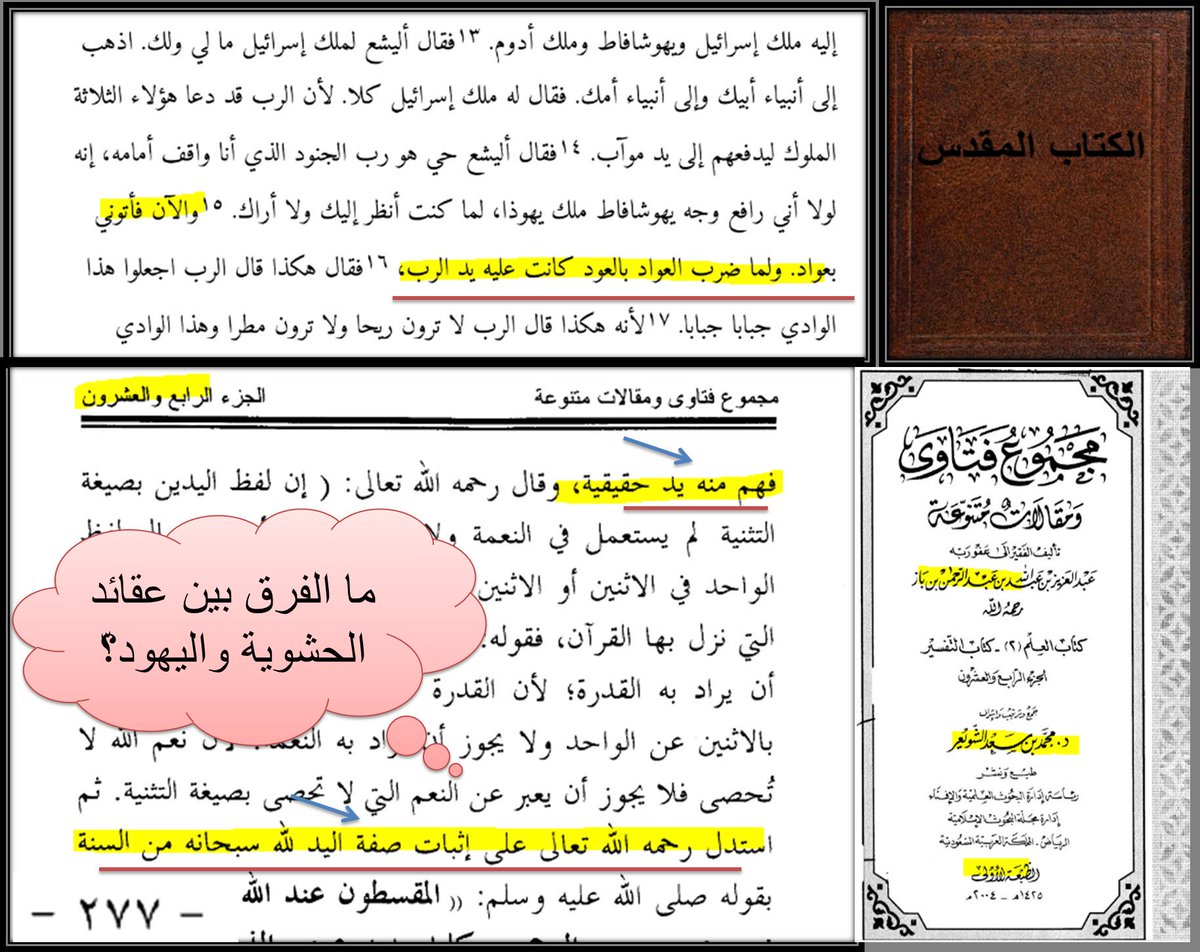 إليه ملك إسرائيل ويهوشافاط وملك أدوم. ١٣فقال أليشع لملك إسرائيل ما لي ولك. اذهب
إلى أنبياء أبيك وإلى أنبياء أمك. فقال له ملك إسرائيل كلا. لأن الرب قد دعا هؤلاء الثلاثة
الملوك ليدفعهم إلى يد موآب. ١٤فقال أليشع حي هو رب الجنود الذي أنا واقف أمامه، إنه
لولا أني رافع وجه يهوشافاط ملك يهوذا، لما كنت أنظر إليك ولا أراك. ١٥والآن فأتوني
بعواد. ولما ضرب العواد بالعود كانت عليه يد الرب، ١٦فقال هكذا قال الرب اجعلوا هذا
الوادي جبابا جبابا. ١٧لأنه هكذا قال الرب لا ترون ريحا ولا ترون مطرا وهذا الوادي
الكتاب المقدس
مجموع فتاوى ومقالات متنوعة
الجزء الرابع والعشرون
فهم منه يد حقيقية، وقال رحمه الله تعالى: ( إن لفظ اليدين بصيغة
التثنية لم يستعمل في النعمة ولا
الواحد في الاثنين أو الاثنين
التي نزل بها القرآن، فقوله:
أن يراد به القدرة؛ لأن القدرة
بالاثنين عن الواحد ولا يجوز أن يراد به النعمة؛ لأن نعم الله لا
تُحصى فلا يجوز أن يعبر عن النعم التي لا تحصى بصيغة التثنية. ثم
استدل رحمه الله تعالى على إثبات صفة اليد لله سبحانه من السنة
بقوله صلى الله عليه وسلم: (( المقسطون عند الله
- ٢٧٧ -
ما الفرق بين عقائد
الحشوية واليهود؟
مَجمُوعُ فَتَاوى
وَمَقَالَات مُتَنَوِّعَة
تأليف الفقير إلى عفو ربه
عبد العزيز بن عبد الله بن عبد الرحمن بن باز
رحمه الله
كتاب العِلم (٢) - كتاب التفسير
الجزء الرابع والعشرون
جمع وترتيب وإشراف
د. محمد بن سعد الشويعر
طبع ونشر
رئاسة إدارة البحوث العلمية والإفتاء
إدارة مجلة البحوث الإسلامية
الرياض. المملكة العربية السعودية
الطبعة الأولى
١٤٢٥هـ - ٢٠٠٤م